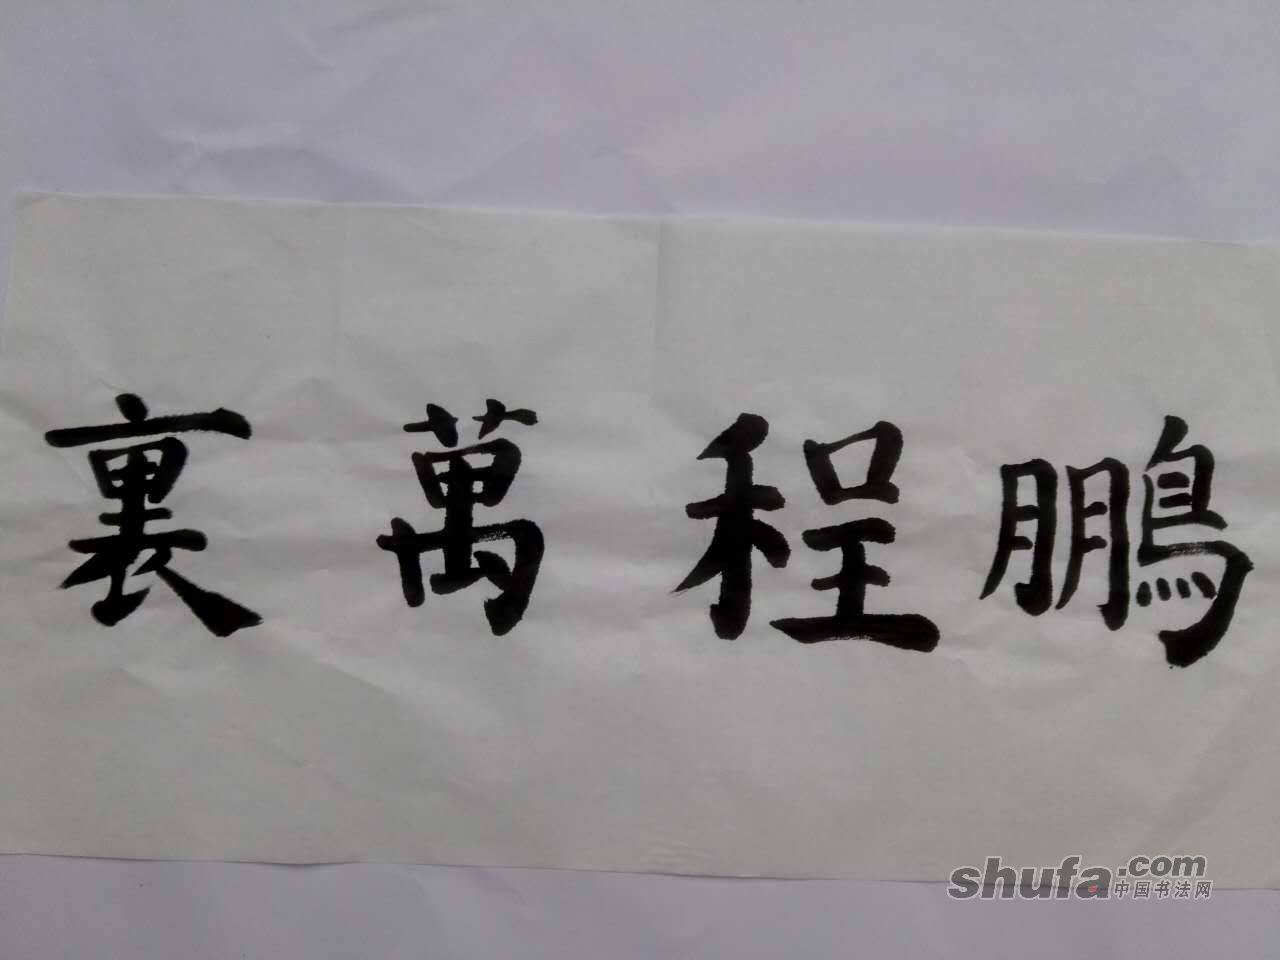 鵬程萬裏
shufa.com
中国书法网